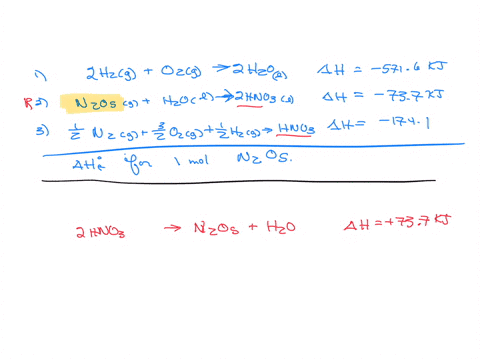 1) 2H₂(g) + O₂(g) → 2H₂O(l) ΔH = -571.6 KJ
R 2) N₂O₅(g) + H₂O(l) → 2HNO₃(l) ΔH = -73.7 KJ
3) 1/2 N₂(g) + 3/2 O₂(g) + 1/2 H₂(g) → HNO₃ ΔH = -174.1
ΔH°f for 1 mol N₂O₅.
2HNO₃ → N₂O₅ + H₂O ΔH = +73.7 KJ